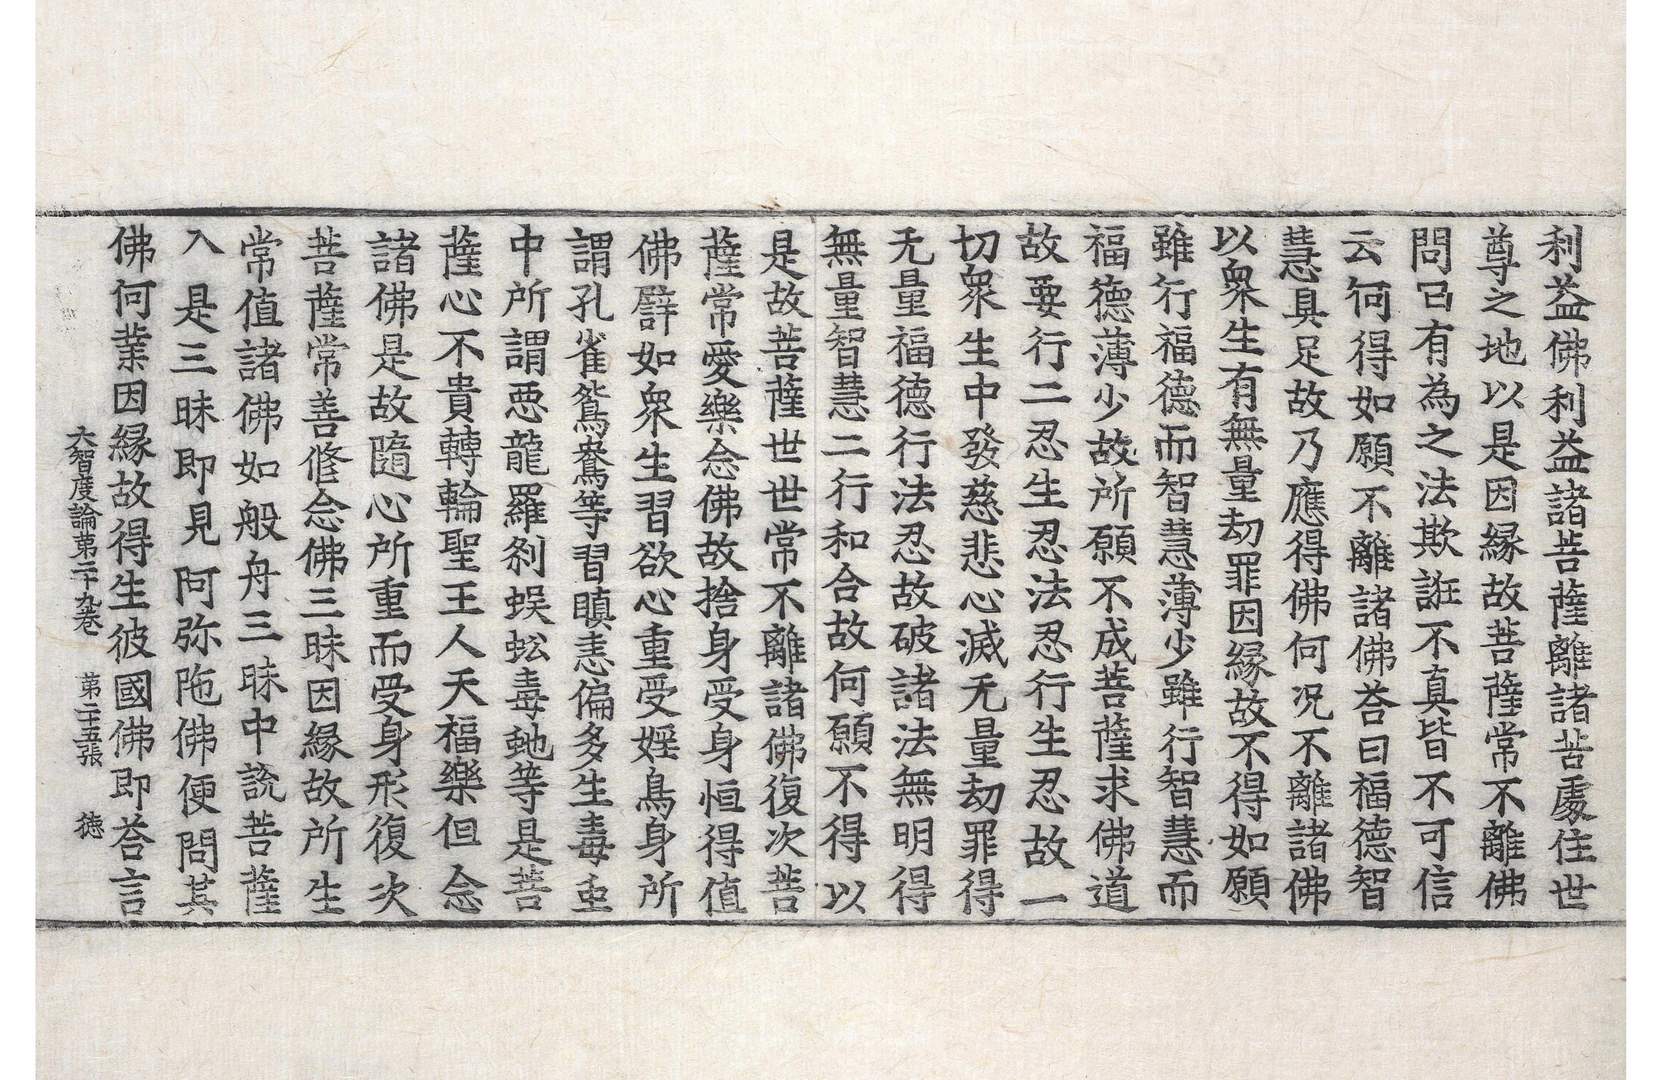 利益佛利益諸菩薩離諸苦處住世
尊之地以是因緣故菩薩常不離佛
問曰有為之法欺誑不真皆不可信
云何得如願不離諸佛荅曰福德智
慧具足故乃應得佛何況不離諸佛
以衆生有無量劫罪因緣故不得如願
雖行福德而智慧薄少雖行智慧而
福德薄少故所願不成菩薩求佛道
故要行二忍生忍法忍行生忍故一
切衆生中發慈悲心滅无量劫罪得
无量福德行法忍故破諸法無明得
無量智慧二行和合故何願不得以
是故菩薩世世常不離諸佛復次菩
薩常愛樂念佛故捨身受身恒得值
佛譬如衆生習欲心重受婬鳥身所
謂孔雀鴛鴦等習瞋恚偏多生毒虫
中所謂惡龍羅剎蜈蚣毒虵等是菩
薩心不貴轉輪聖王人天福樂但念
諸佛是故隨心所重而受身形復次
菩薩常善修念佛三昧因緣故所生
常值諸佛如般舟三昧中說菩薩
入是三昧即見阿弥陁佛便問其
佛何業因緣故得生彼國佛即荅言
大智度論第二十九卷 第二十五張 德